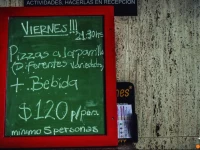 ACTIVIDADES, HACERLAS EN RECEPCION
VIERNES!!!
21:30hs
Pizzas a la parrilla
(Diferentes variedades)
+ Bebida
$120 p/pers
mínimo 5 personas